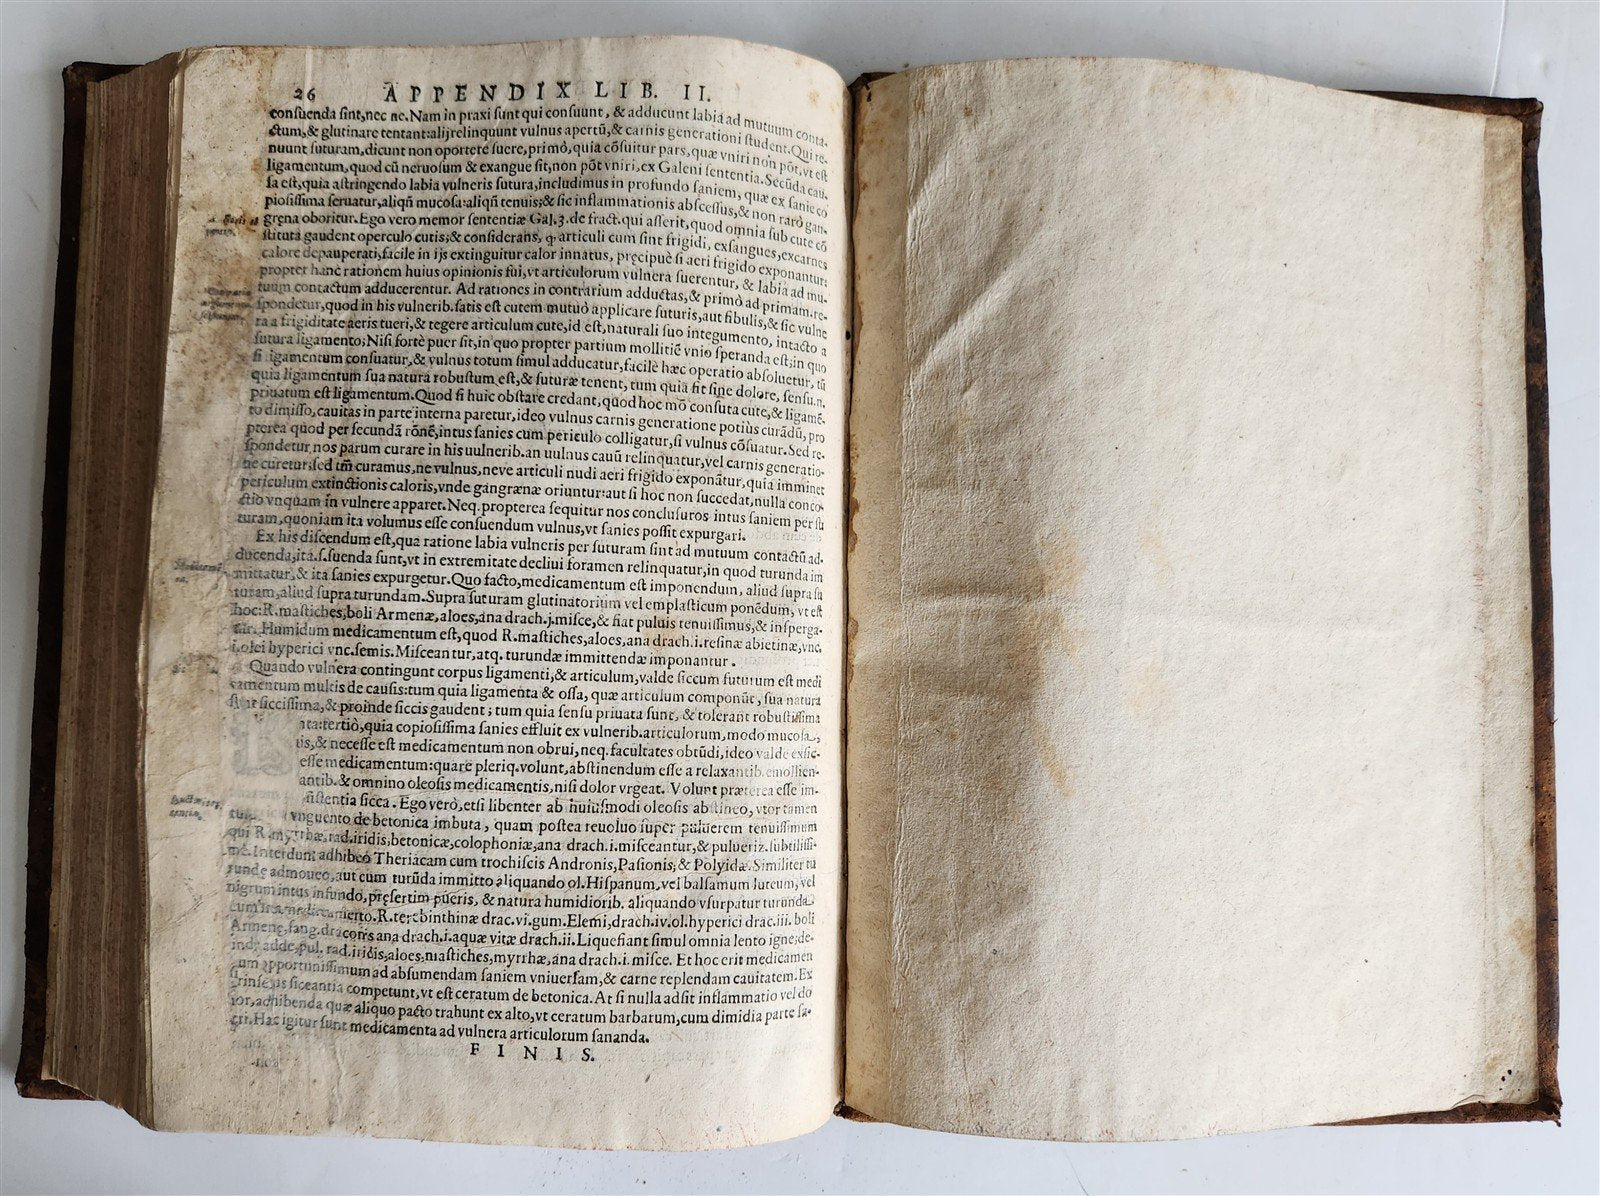 26 APPENDIX LIB. II.
consuenda sint, nec ne. Nam in praxi sunt qui consuunt, & adducunt labia ad mutuum conta-
ctum, & glutinare tentant: alij relinquunt vulnus apertũ, & carnis generationi student. Qui re-
nuunt suturam, dicunt non oportere suere, primò, quia cõsuitur pars, quæ vniri non põt, vt est
ligamentum, quod cũ neruosum & exangue sit, non põt vniri, ex Galeni sententia. Secũda cau-
sa est, quia astringendo labia vulneris sutura, includimus in profundo saniem, quæ ex sanie co
piosissima seruatur, aliqñ mucosa: aliqñ tenuis; & sic inflammationis abscessus, & non rarò gan-
gręna oboritur. Ego vero memor sententiæ Gal. 3. de fract. qui asserit, quod omnia sub cute cõ
stituta gaudent operculo cutis; & considerans, ꝙ articuli cum sint frigidi, exsangues, excarnes
calore depauperati, facile in ijs extinguitur calor innatus, pręcipuè si aeri frigido exponantur;
propter hanc rationem huius opinionis fui, vt articulorum vulnera suerentur, & labia ad mu-
tuum contactum adducerentur. Ad rationes in contrarium adductas, & primò ad primam. re-
spondetur, quod in his vulnerib. satis est cutem mutuò applicare suturis, aut fibulis, & sic vulne
ra a frigiditate aeris tueri, & tegere articulum cute, id est, naturali suo integumento, intacto a
sutura ligamento; Nisi fortè puer sit, in quo propter partium mollitiẽ vnio speranda est; in quo
si ligamentum consuatur, & vulnus totum simul adducatur, facilè hæc operatio absoluetur, tũ
quia ligamentum sua natura robustum est, & suturæ tenent, tum quia fit sine dolore, sensu.n.
priuatum est ligamentum. Quod si huic obstare credant, quod hoc mõ consuta cute, & ligamẽ-
to dimisso, cauitas in parte interna paretur, ideo vulnus carnis generatione potiùs curãdũ, pro
pterea quod per secundã rõnẽ, intus sanies cum periculo colligatur, si vulnus cõsuatur. Sed re-
spondetur nos parum curare in his uulnerib. an uulnus cauũ relinquatur, vel carnis generatio-
ne curetur; sed tm̃ curamus, ne vulnus, neve articuli nudi aeri frigido exponãtur, quia imminet
periculum extinctionis caloris, vnde gangrænæ oriuntur: aut si hoc non succedat, nulla conco-
ctio vnquam in vulnere apparet. Neq. propterea sequitur nos conclusuros intus saniem per su
turam, quoniam ita volumus esse consuendum vulnus, vt sanies possit expurgari.
Ex his discendum est, qua ratione labia vulneris per suturam sint ad mutuum contactũ ad-
ducenda, ita. s. suenda sunt, vt in extremitate decliui foramen relinquatur, in quod turunda im
mittatur, & ita sanies expurgetur. Quo facto, medicamentum est imponendum, aliud supra su
turam, aliud supra turundam. Supra suturam glutinatorium vel emplasticum ponẽdum, vt est
hoc: R. mastiches, boli Armenæ, aloes, ana drach. j. misce, & fiat puluis tenuissimus, & insperga-
tur. Humidum medicamentum est, quod R. mastiches, aloes, ana drach. i. resinæ abietinæ, vnc.
i. olei hyperici vnc. semis. Misceantur, atq. turundæ immittendæ imponantur.
Quando vulnera contingunt corpus ligamenti, & articulum, valde siccum futurum est medi
camentum multis de causis: tum quia ligamenta & ossa, quæ articulum componũt, sua natura
siccissima, & proinde siccis gaudent; tum quia sensu priuata sunt, & tolerant robustissima
tertiò, quia copiosissima sanies effluit ex vulnerib. articulorum, modo mucosa,
& necesse est medicamentum non obrui, neq. facultates obtũdi, ideo valde exsic-
esse medicamentum: quare pleriq. volunt, abstinendum esse a relaxantib. emollien-
antib. & omnino oleosis medicamentis, nisi dolor vrgeat. Volunt præterea esse im-
sistentia sicca. Ego verò, etsi libenter ab huiusmodi oleosis abstineo, vtor tamen
vnguento de betonica imbuta, quam postea reuoluo super puluerem tenuissimum
qui R. myrrhæ, rad. iridis, betonicæ, colophoniæ, ana drach. i. misceantur, & pulueriz. subtilissi-
mè. Interdum adhibeo Theriacam cum trochiscis Andronis, Pasionis, & Polyidæ. Similiter tu
rundę admoueo, aut cum turũda immitto aliquando ol. Hispanum, vel balsamum luteum, vel
nigrum intus infundo, pręsertim pueris, & natura humidiorib. aliquando vsurpatur turunda
cum medicamento. R. terebinthinæ drac. vi. gum. Elemi, drach. iv. ol. hyperici drac. iii. boli
Armenę, sang. draconis ana drach. i. aquæ vitæ drach. ii. Liquefiant simul omnia lento igne; de-
indę adde, pul. rad. iridis, aloes, mastiches, myrrhæ, ana drach. i. misce. Et hoc erit medicamen
tum opportunissimum ad absumendam saniem vniuersam, & carne replendam cauitatem. Ex
trinsecus siccantia competunt, vt est ceratum de betonica. At si nulla adsit inflammatio vel do
lor, adhibenda quæ aliquo pacto trahunt ex alto, vt ceratum barbarum, cum dimidia parte sa-
cri. Hac igitur sunt medicamenta ad vulnera articulorum sananda.
FINIS.